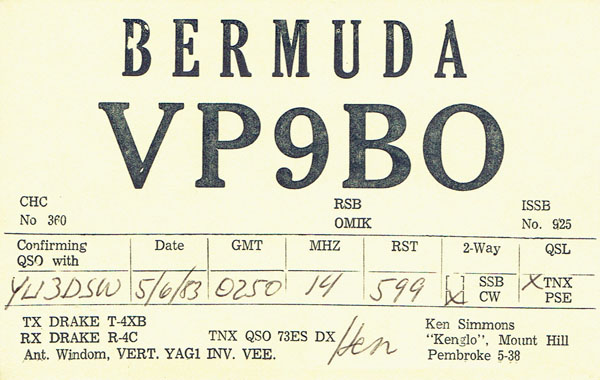 BERMUDA
VP9BO
CHC RSB ISSB
No 360 OMIK No. 925
Confirming QSO with Date GMT MHZ RST 2-Way QSL
YU3DSW 5/6/83 0250 14 599 [ ] SSB X TNX
X CW PSE
TX DRAKE T-4XB
RX DRAKE R-4C
Ant. Windom, VERT. YAG1 INV. VEE.
TNX QSO 73ES DX Ken
Ken Simmons
"Kenglo", Mount Hill
Pembroke 5-38